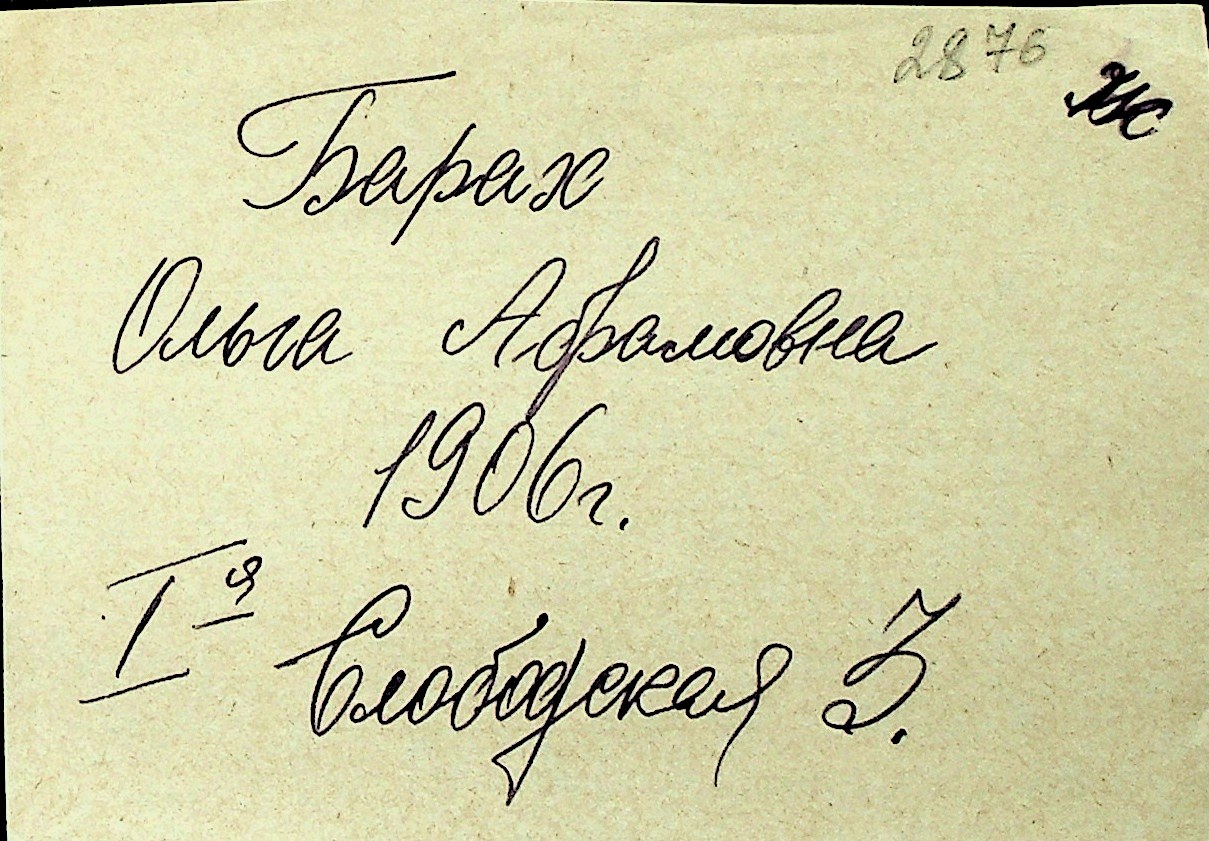 2876
Барах
Ольга Абрамовна
1906 г.
I я Слободская 3.